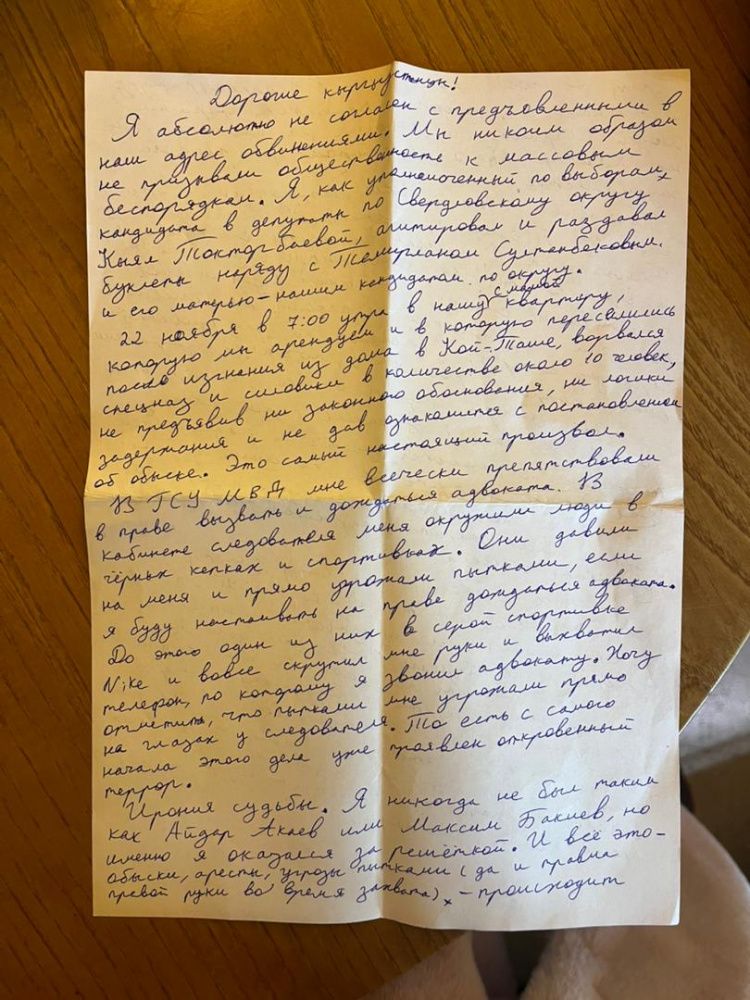 Дорогие кыргызстанцы!
Я абсолютно не согласен с предъявленными в
наш адрес обвинениями. Мы никоим образом
не призывали общественность к массовым
беспорядкам. Я, как уполномоченный по выборам
кандидата в депутаты по Свердловскому округу
Кыял Токторбаевой, агитировал и раздавал
буклеты наряду с Темирланом Султанбековым
и его матерью - нашим кандидатом по округу.
22 ноября в 7:00 утра в нашу с мамой квартиру,
которую мы арендуем и в которую переселились
после изгнания из дома в Кой-Таше, ворвался
спецназ и силовики в количестве около 10 человек,
не предъявив ни законного обоснования, ни логики
задержания и не дав ознакомится с постановлением
об обыске. Это самый настоящий произвол.
В ГСУ МВД мне всячески препятствовали
в праве вызвать и дождаться адвоката. В
кабинете следователя меня окружили люди в
чёрных кепках и спортивках. Они давили
на меня и прямо угрожали пытками, если
я буду настаивать на праве дождаться адвоката.
До этого один из них в серой спортивке
Nike и вовсе скрутил мне руки и выхватил
телефон, по которому я звонил адвокату. Хочу
отметить, что пытками мне угрожали прямо
на глазах у следователя. То есть с самого
начала этого дела уже проявлен откровенный
террор.
Ирония судьбы. Я никогда не был таким
как Айдар Акаев или Максим Бакиев, но
именно я оказался за решёткой. И всё это -
обыски, аресты, угрозы пытками (да и
правой руки во время захвата), - происходит